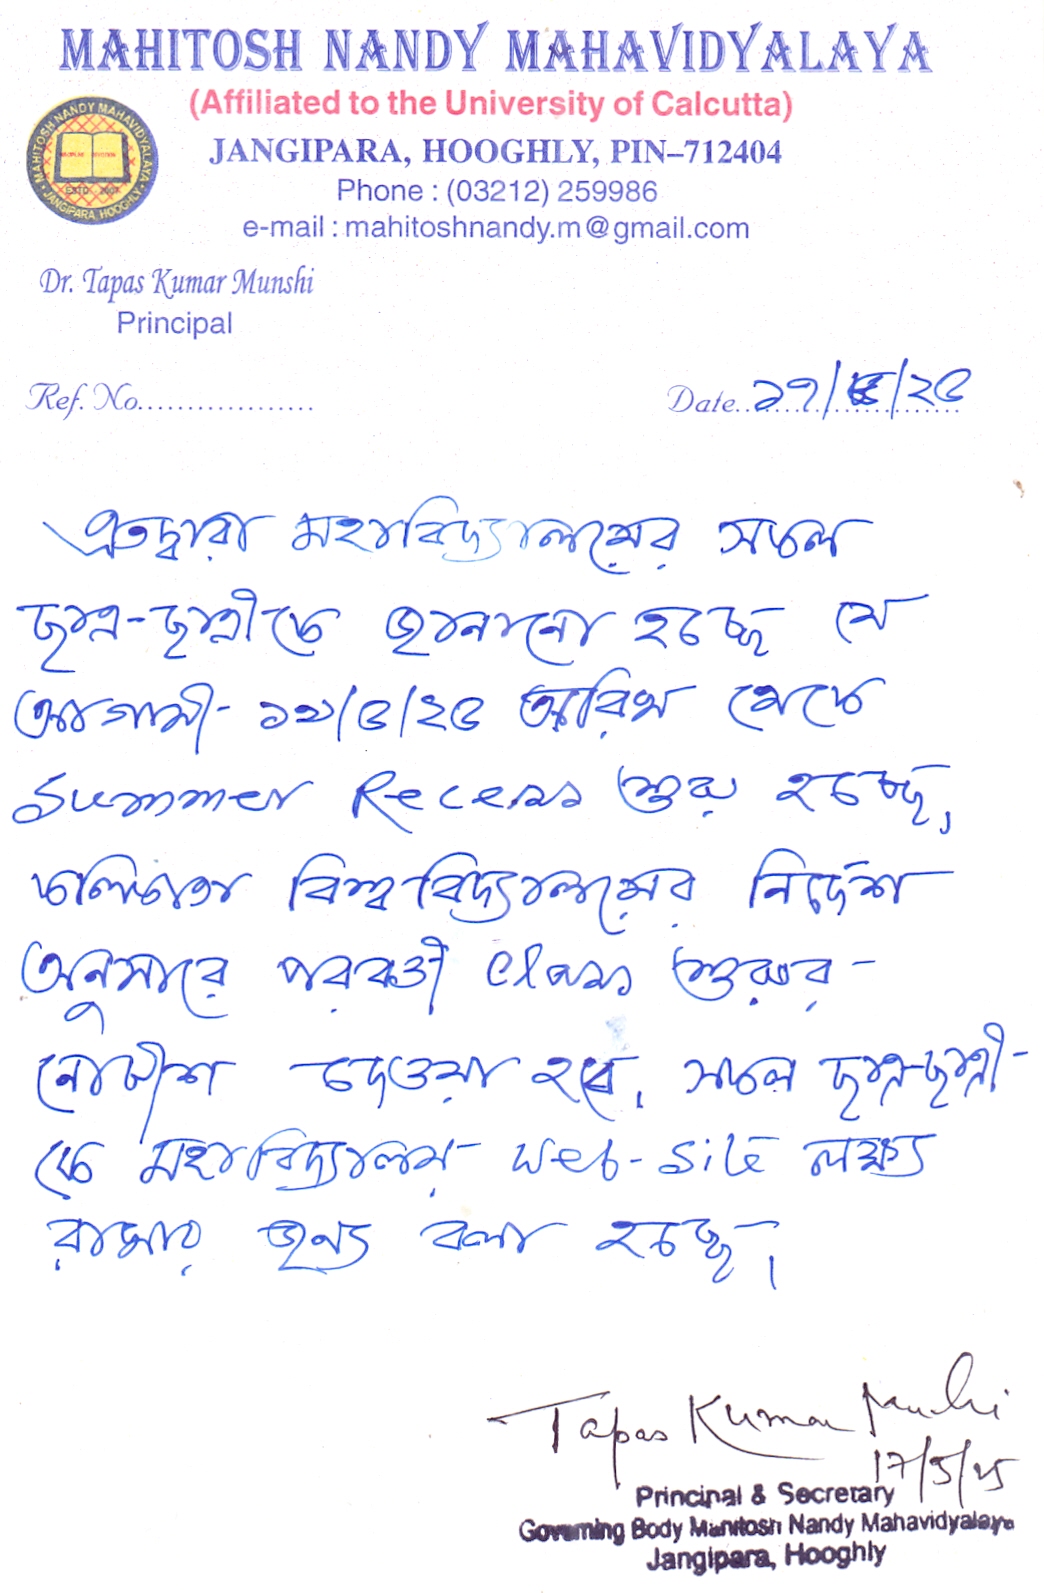 MAHITOSH NANDY MAHAVIDYALAYA
(Affiliated to the University of Calcutta)
JANGIPARA, HOOGHLY, PIN–712404
Phone : (03212) 259986
e-mail : mahitoshnandy.m@gmail.com
MAHITOSH NANDY MAHAVIDYALAYA
ESTD 2007
JANGIPARA, HOOGHLY
Dr. Tapas Kumar Munshi
Principal
Ref. No..................
Date. ১৭/৫/২৫
এতদ্বারা মহাবিদ্যালয়ের সকল
ছাত্র-ছাত্রীকে জানানো হচ্ছে যে
আগামী- ১৯/৫/২৫ তারিখ থেকে
Summer Recess শুরু হচ্ছে,
কলিকাতা বিশ্ববিদ্যালয়ের নির্দেশ
অনুসারে পরবর্তী Class শুরুর-
নোটীশ দেওয়া হবে, সকল ছাত্র-ছাত্রী-
কে মহাবিদ্যালয় web-site লক্ষ্য
রাখার জন্য বলা হচ্ছে।
Tapas Kumar Munshi
17/5/25
Principal & Secretary
Governing Body Mahitosh Nandy Mahavidyalaya
Jangipara, Hooghly